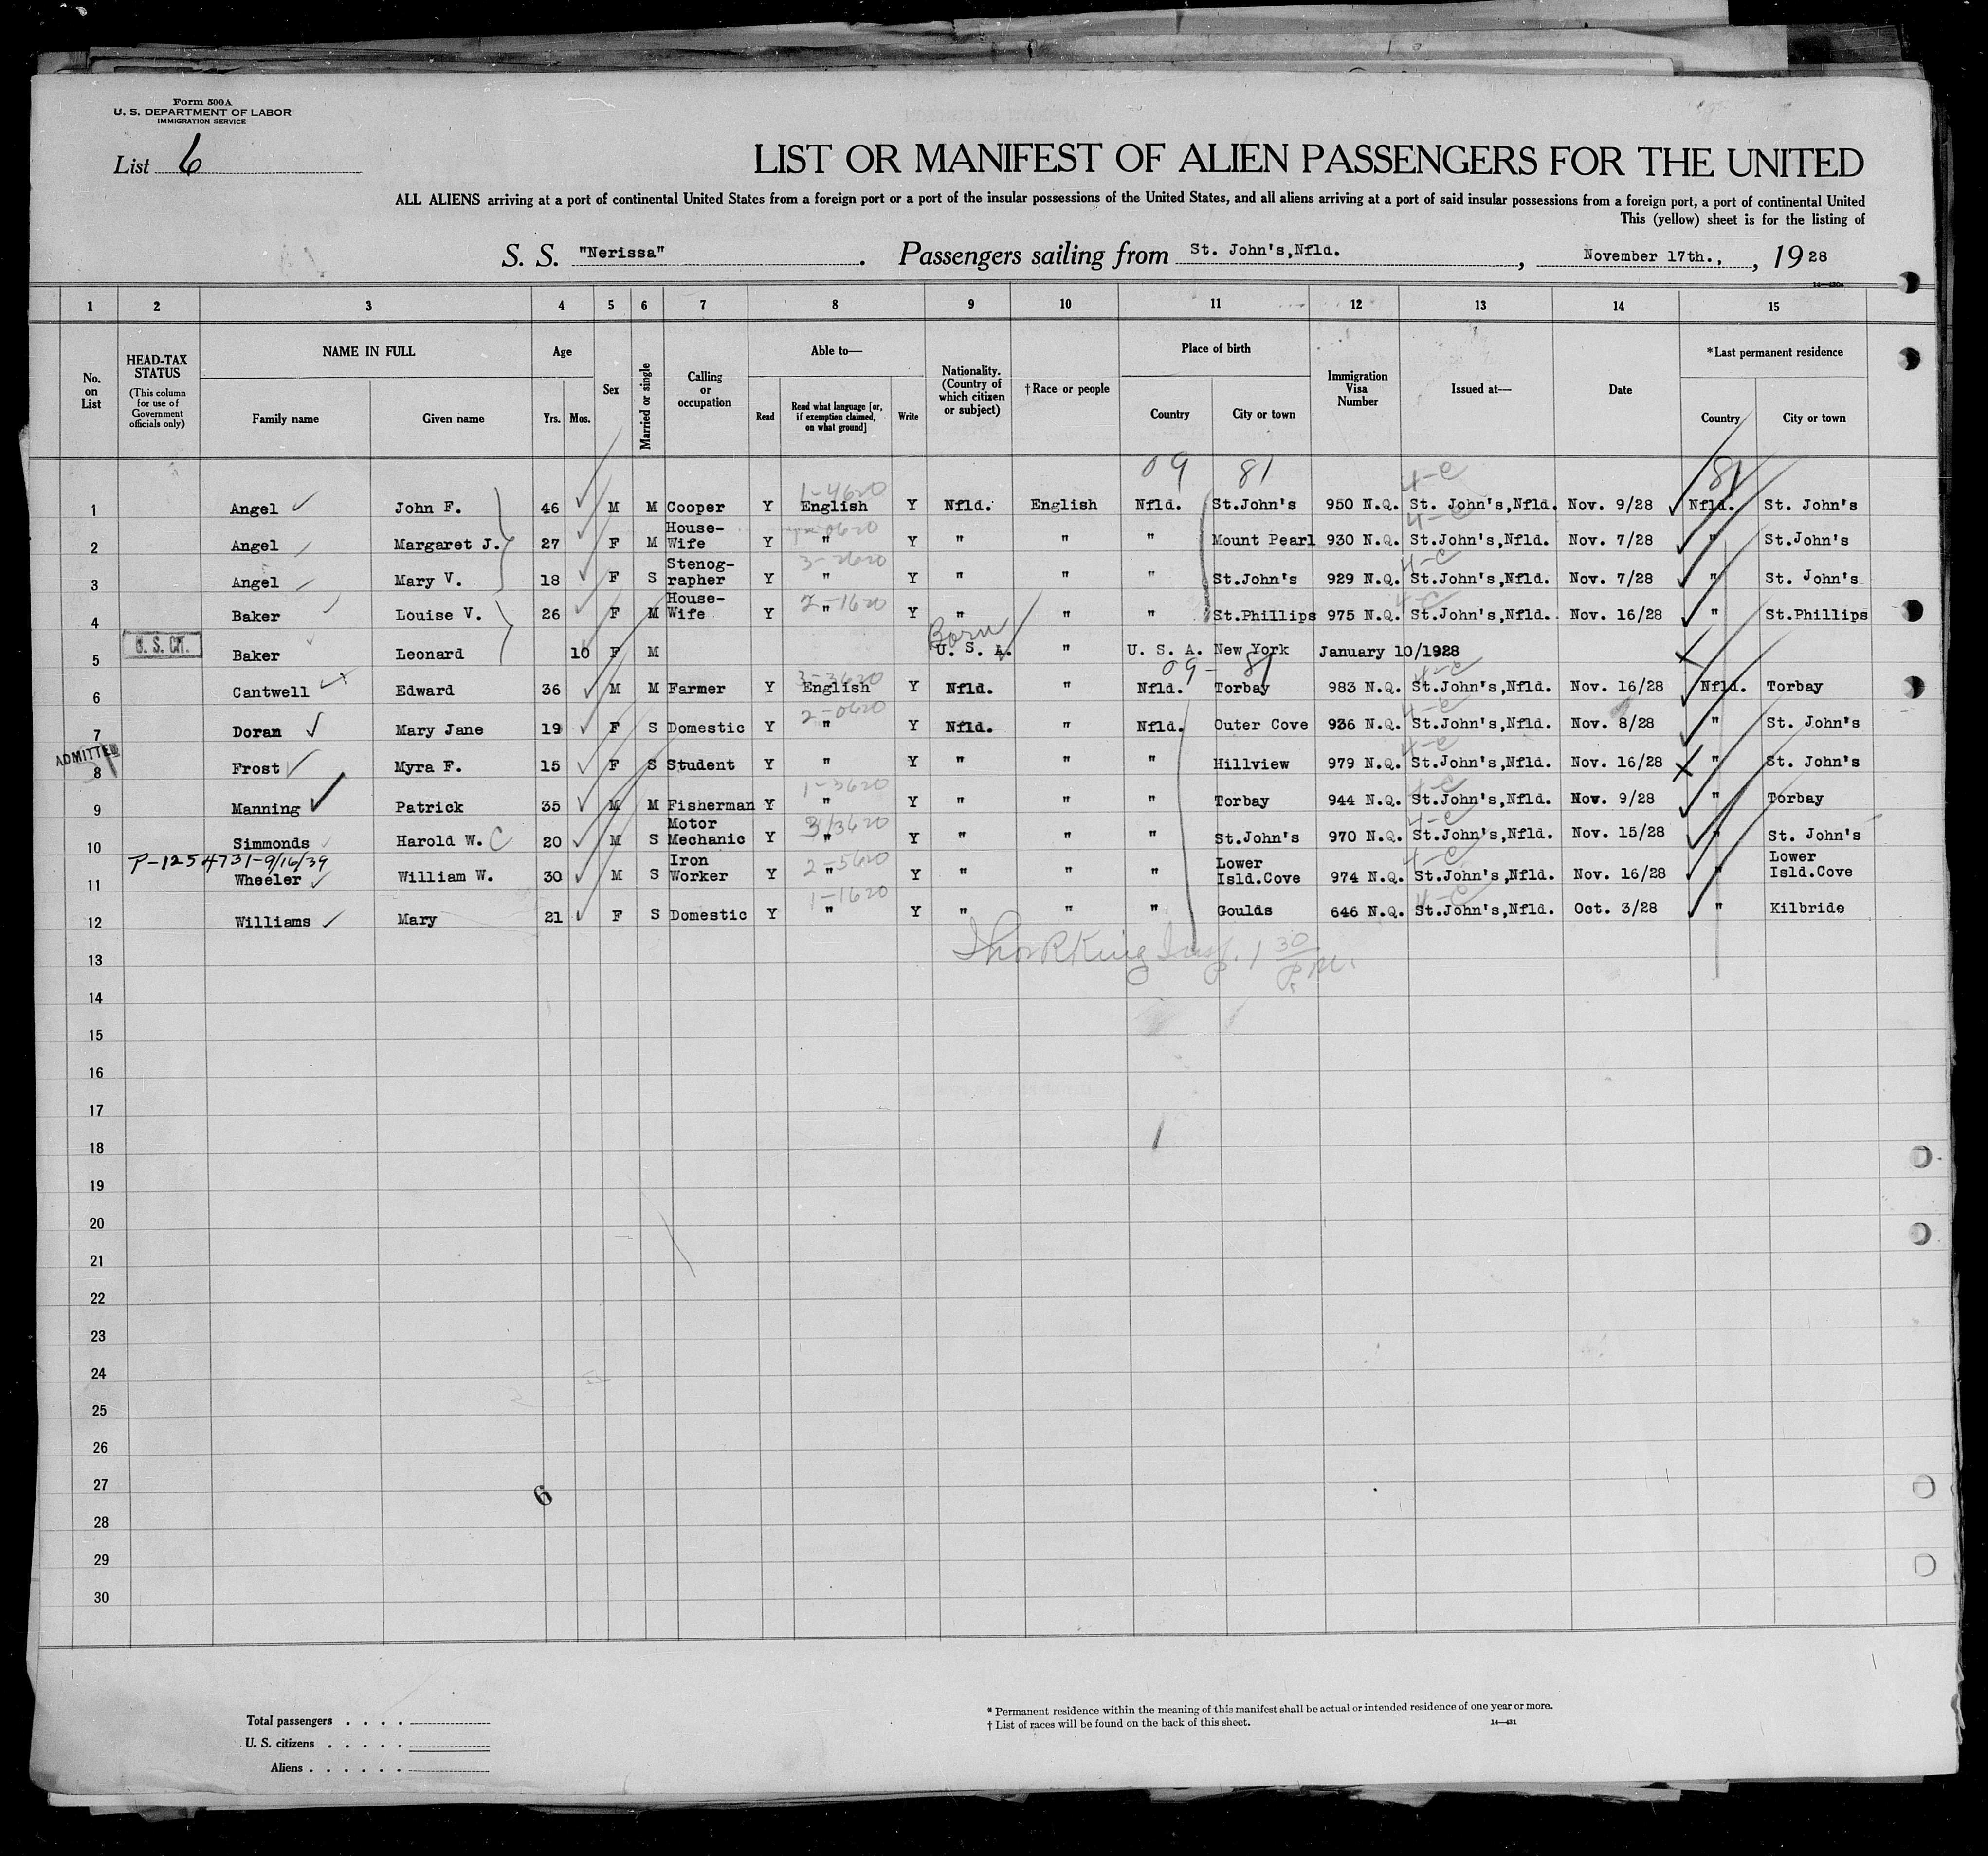 Form 500A
U. S. DEPARTMENT OF LABOR
IMMIGRATION SERVICE
List 6
LIST OR MANIFEST OF ALIEN PASSENGERS FOR THE UNITED
ALL ALIENS arriving at a port of continental United States from a foreign port or a port of the insular possessions of the United States, and all aliens arriving at a port of said insular possessions from a foreign port, a port of continental United
This (yellow) sheet is for the listing of
S. S. "Nerissa". Passengers sailing from St. John's,Nfld., November 17th., , 19 28
1 2 3 4 5 6 7 8 9 10 11 12 13 14 15
No. on List
HEAD-TAX STATUS
(This column for use of Government officials only)
NAME IN FULL
Family name Given name
Age
Yrs. Mos.
Sex
Married or single
Calling or occupation
Able to—
Read Read what language [or, if exemption claimed, on what ground] Write
Nationality. (Country of which citizen or subject)
†Race or people
Place of birth
Country City or town
Immigration Visa Number
Issued at—
Date
*Last permanent residence
Country City or town
09 81 4-C 81
1-4620
1 Angel John F. 46 M M Cooper Y English Y Nfld. English Nfld. St.John's 950 N.Q. St. John's,Nfld. Nov. 9/28 Nfld. St. John's
0620 4-C
2 Angel Margaret J. 27 F M House-Wife Y " Y " " " Mount Pearl 930 N.Q. St.John's,Nfld. Nov. 7/28 " St.John's
3-2620 4-C
3 Angel Mary V. 18 F S Stenog-rapher Y " Y " " " St.John's 929 N.Q. St.John's,Nfld. Nov. 7/28 " St. John's
2-1620 4-C
4 Baker Louise V. 26 F M House-Wife Y " Y " " " St.Phillips 975 N.Q. St.John's,Nfld. Nov. 16/28 " St.Phillips
U. S. CIT. Born
5 Baker Leonard 10 F M U. S. A. " U. S. A. New York January 10/1928
3-3620 09- 81 4-C
6 Cantwell Edward 36 M M Farmer Y English Y Nfld. " Nfld. Torbay 983 N.Q. St.John's,Nfld. Nov. 16/28 Nfld. Torbay
2-0620 4-C
7 Doran Mary Jane 19 F S Domestic Y " Y Nfld. " Nfld. Outer Cove 936 N.Q. St.John's,Nfld. Nov. 8/28 " St. John's
ADMITTED 4-C
8 Frost Myra F. 15 F S Student Y " Y " " " Hillview 979 N.Q. St.John's,Nfld. Nov. 16/28 " St. John's
1-3620 4-C
9 Manning Patrick 35 M M Fisherman Y " Y " " " Torbay 944 N.Q. St.John's,Nfld. Nov. 9/28 " Torbay
3/3620 4-C
10 Simmonds Harold W. C 20 M S Motor Mechanic Y " Y " " " St.John's 970 N.Q. St.John's,Nfld. Nov. 15/28 " St. John's
P-1254731-9/16/39 2-5620 4-C
11 Wheeler William W. 30 M S Iron Worker Y " Y " " " Lower Isld.Cove 974 N.Q. St.John's,Nfld. Nov. 16/28 " Lower Isld.Cove
1-1620 4-C
12 Williams Mary 21 F S Domestic Y " Y " " " Goulds 646 N.Q. St.John's,Nfld. Oct. 3/28 " Kilbride
13 King Insp. 1 30 P.M.
14
15
16
17
18
19
20
21
22
23
24
25
26
27
6
28
29
30
Total passengers . . . .
U. S. citizens . . . . .
Aliens . . . . . .
* Permanent residence within the meaning of this manifest shall be actual or intended residence of one year or more.
† List of races will be found on the back of this sheet.
14—431